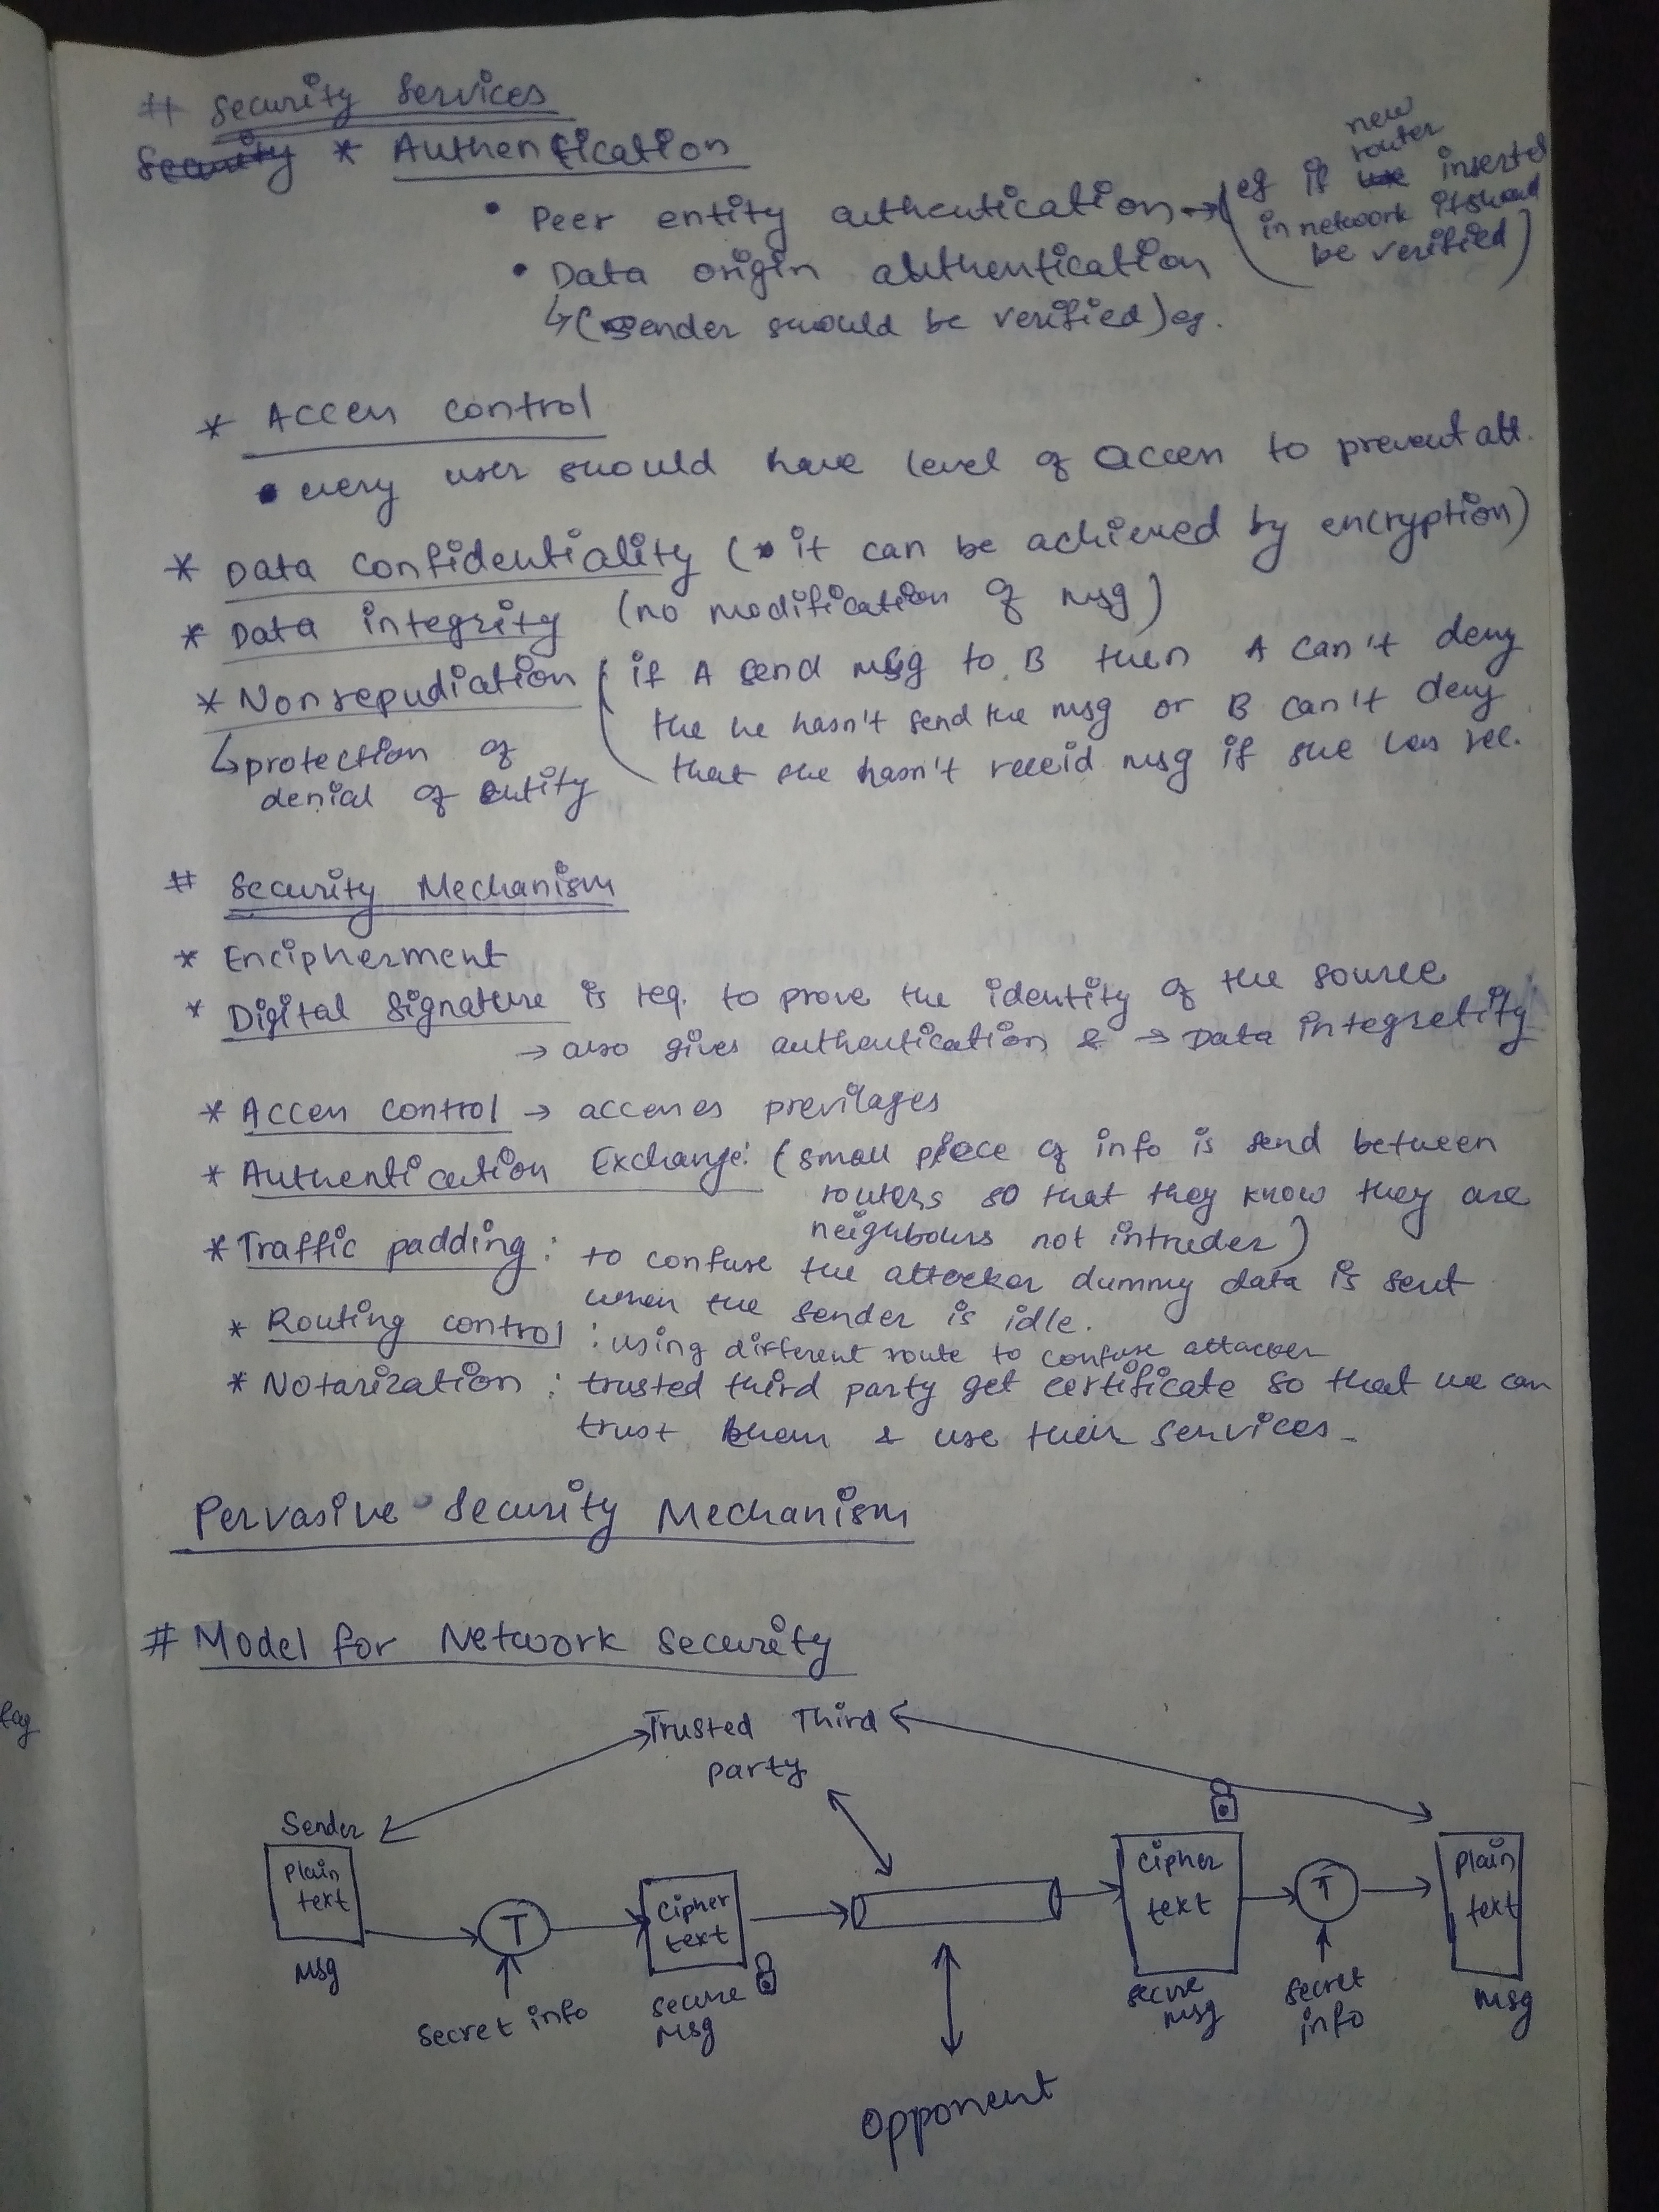 # Security Services
Security * Authentication
• Peer entity authentication → (eg if new router inserted
in network it should
be verified)
• Data origin authentication
↳ (sender should be verified) eg.
* Access control
• every user should have level of access to prevent att.
* Data confidentiality (it can be achieved by encryption)
* Data integrity (no modification of msg)
* Nonrepudiation (if A send msg to B then A can't deny
the he hasn't send the msg or B can't deny
that she hasn't receid msg if she has rec.
↳ protection of
denial of entity
# Security Mechanism
* Encipherment
* Digital Signature is req. to prove the identity of the source
→ also gives authentication & → Data integretity
* Access control → accenes previlages
* Authentication Exchange: (small piece of info is send between
routers so that they know they are
neighbours not intruder)
* Traffic padding : to confuse the attacker dummy data is sent
when the sender is idle.
* Routing control : using different route to confuse attacker
* Notarization : trusted third party get certificate so that we can
trust them & use their services.
Pervasive Security Mechanism
# Model for Network Security
Trusted Third
party
Sender
Plain
text
Msg
T
Secret info
Cipher
text
secure
Msg
Cipher
text
secure
msg
T
secret
info
Plain
text
Msg
Opponent